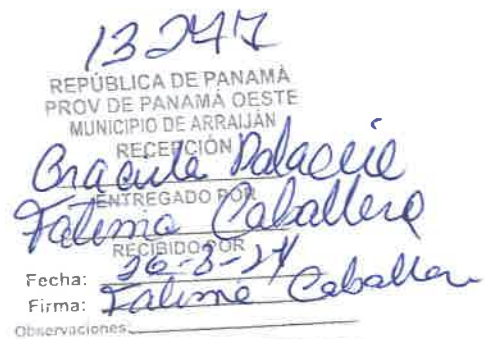 REPÚBLICA DE PANAMÁ
PROV DE PANAMÁ OESTE
MUNICIPIO DE ARRAIJÁN
RECEPCIÓN
Palacio
ENTREGADO POR
Fatima Caballero
RECIBIDO POR
Fecha: 26-3-24
Firma: Fatima Caballero
Observaciones: